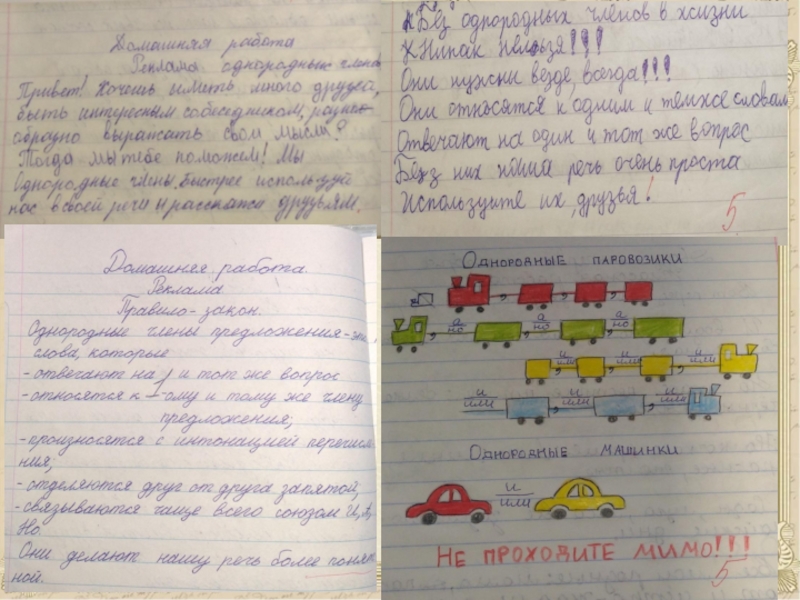 Домашняя работа
Реклама однородных члено
Привет! Хочешь иметь много друзей,
быть интересным собеседником, разно-
образно выражать свои мысли?
Тогда мы тебе поможем! Мы
Однородные члены. Быстрее используй
нас в своей речи и расскажи друзьям.
Без однородных членов в жизни
Никак нельзя!!!
Они нужны везде, всегда!!!
Они относятся к одним и тем же словам
Отвечают на один и тот же вопрос
Без них наша речь очень проста
Используйте их, друзья!
5
Домашняя работа.
Реклама
Правило-закон.
Однородные члены предложения-это
слова, которые
- отвечают на 1 и тот же вопрос
- относятся к 1-ому и тому же члену
предложения;
- произносятся с интонацией перечисле
ния;
- отделяются друг от друга запятой,
- связываются чаще всего союзом И, А,
Но.
Они делают нашу речь более понят
ной.
Однородные паровозики
, , ,
, а но , а но , а но
и или , и или , и или ,
и или , и или , и или
Однородные машинки
и или
Не проходите мимо!!!
5